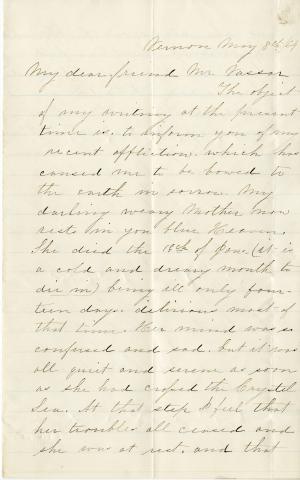 Vernon May 8th, 64
My dear friend Mr Vassar
The object
of my writing at the present
time is to inform you of my
recent affliction which has
caused me to be bowed to
the earth in sorrow. My
darling weary Mother now
rests in yon blue Heaven.
She died the 18th of Jan. (it is
a cold and dreary month to
die in) being ill only four-
teen days. delirious most of
that time. Her mind was so
confused and sad. but it was
all quiet and serene as soon
as she had crossed the Crystal
Sea. At that step I feel that
her troubles all ceased and
she was at rest. and that